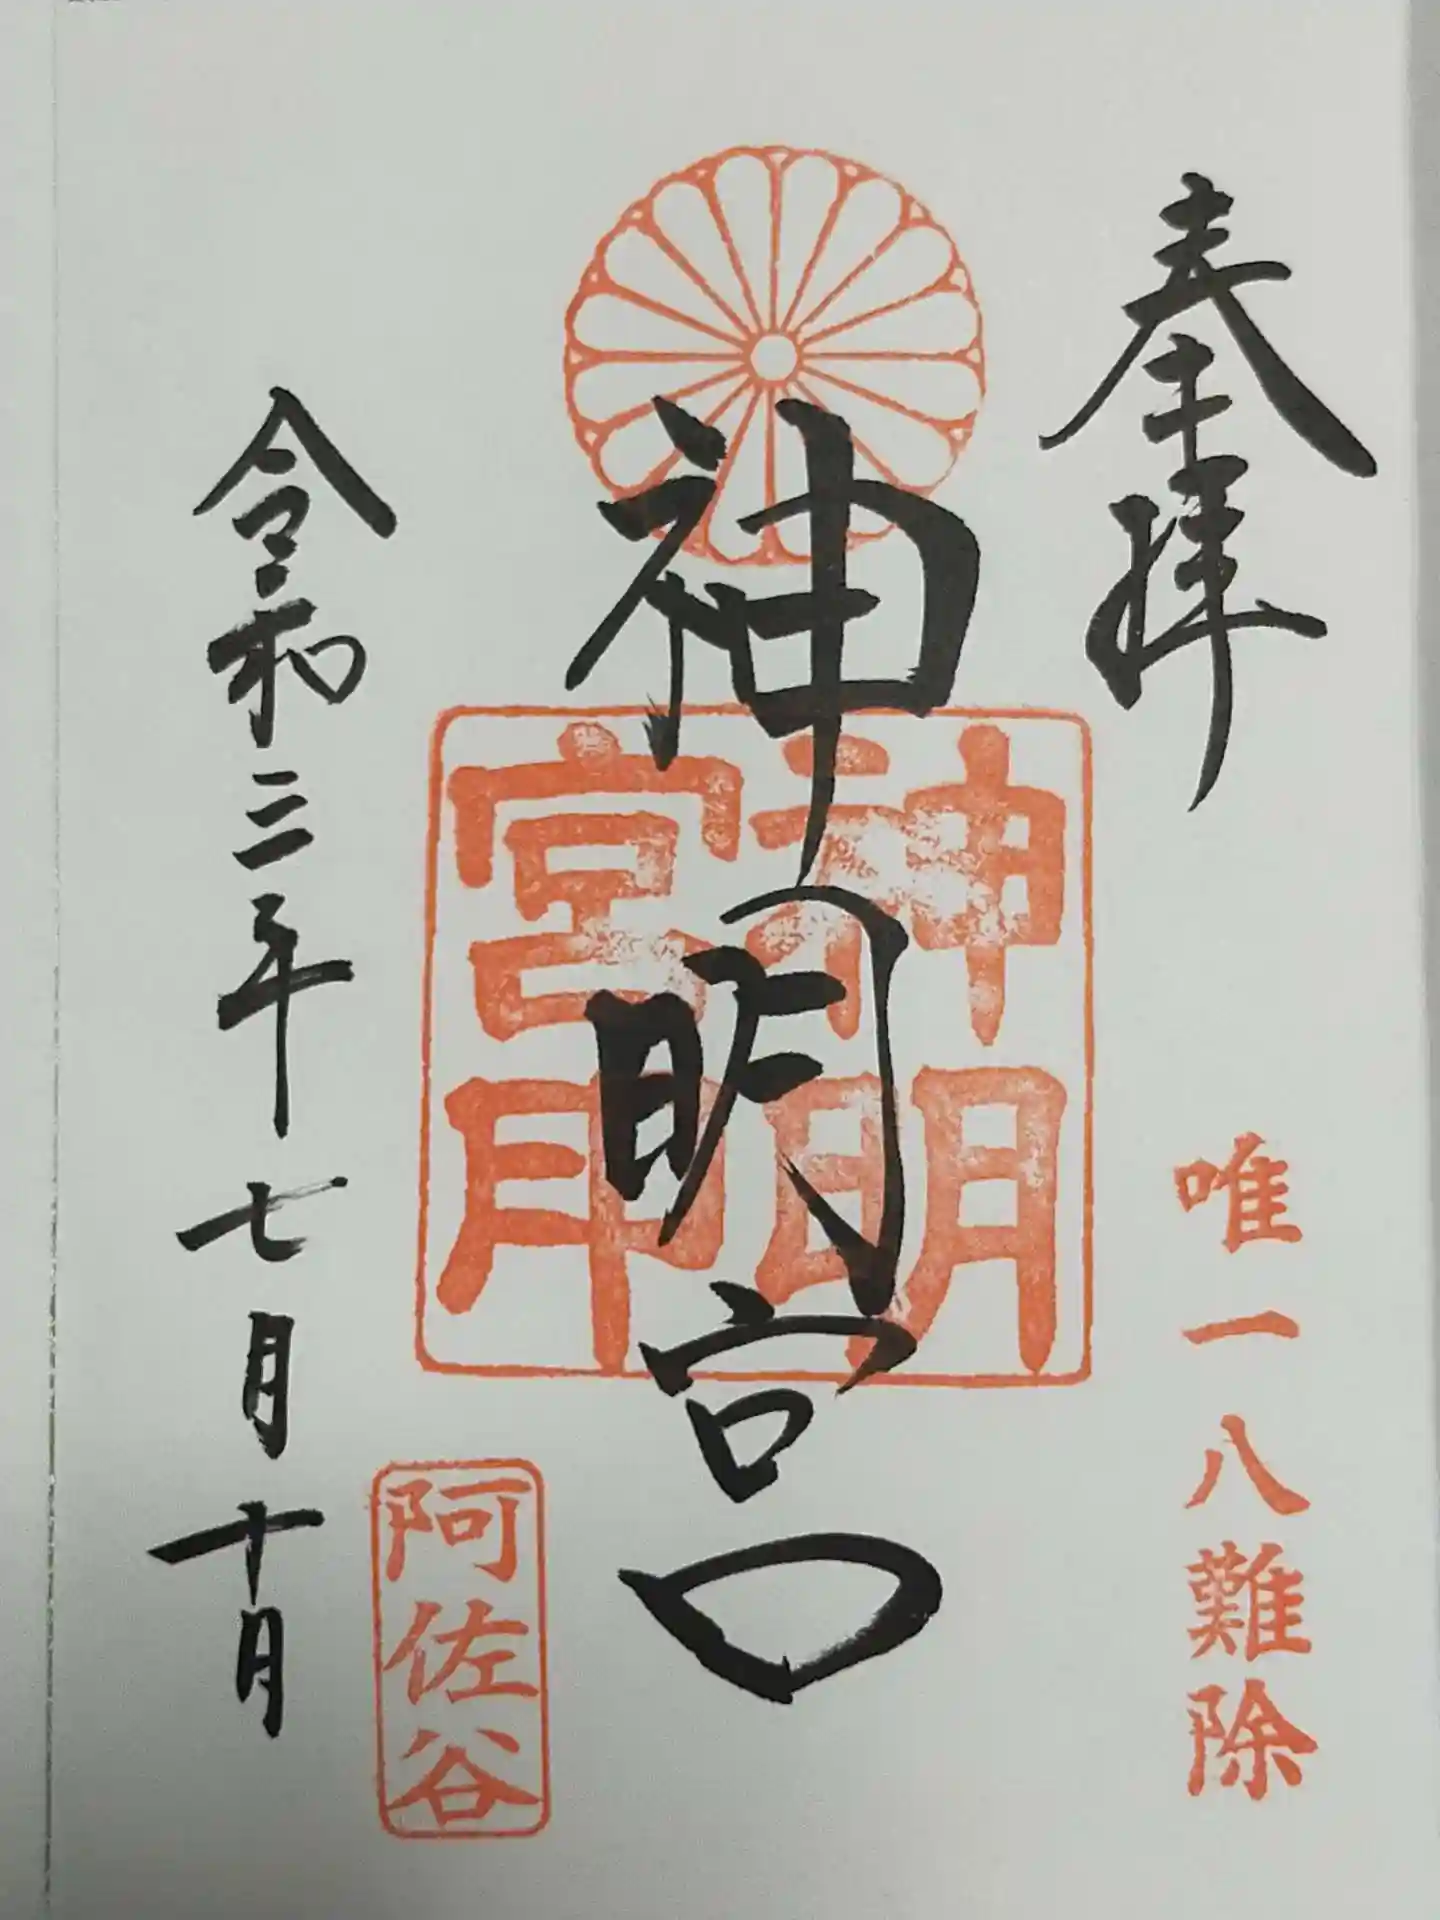 奉拝
唯一八難除
神明宮
神明宮印
阿佐谷
令和三年七月十日